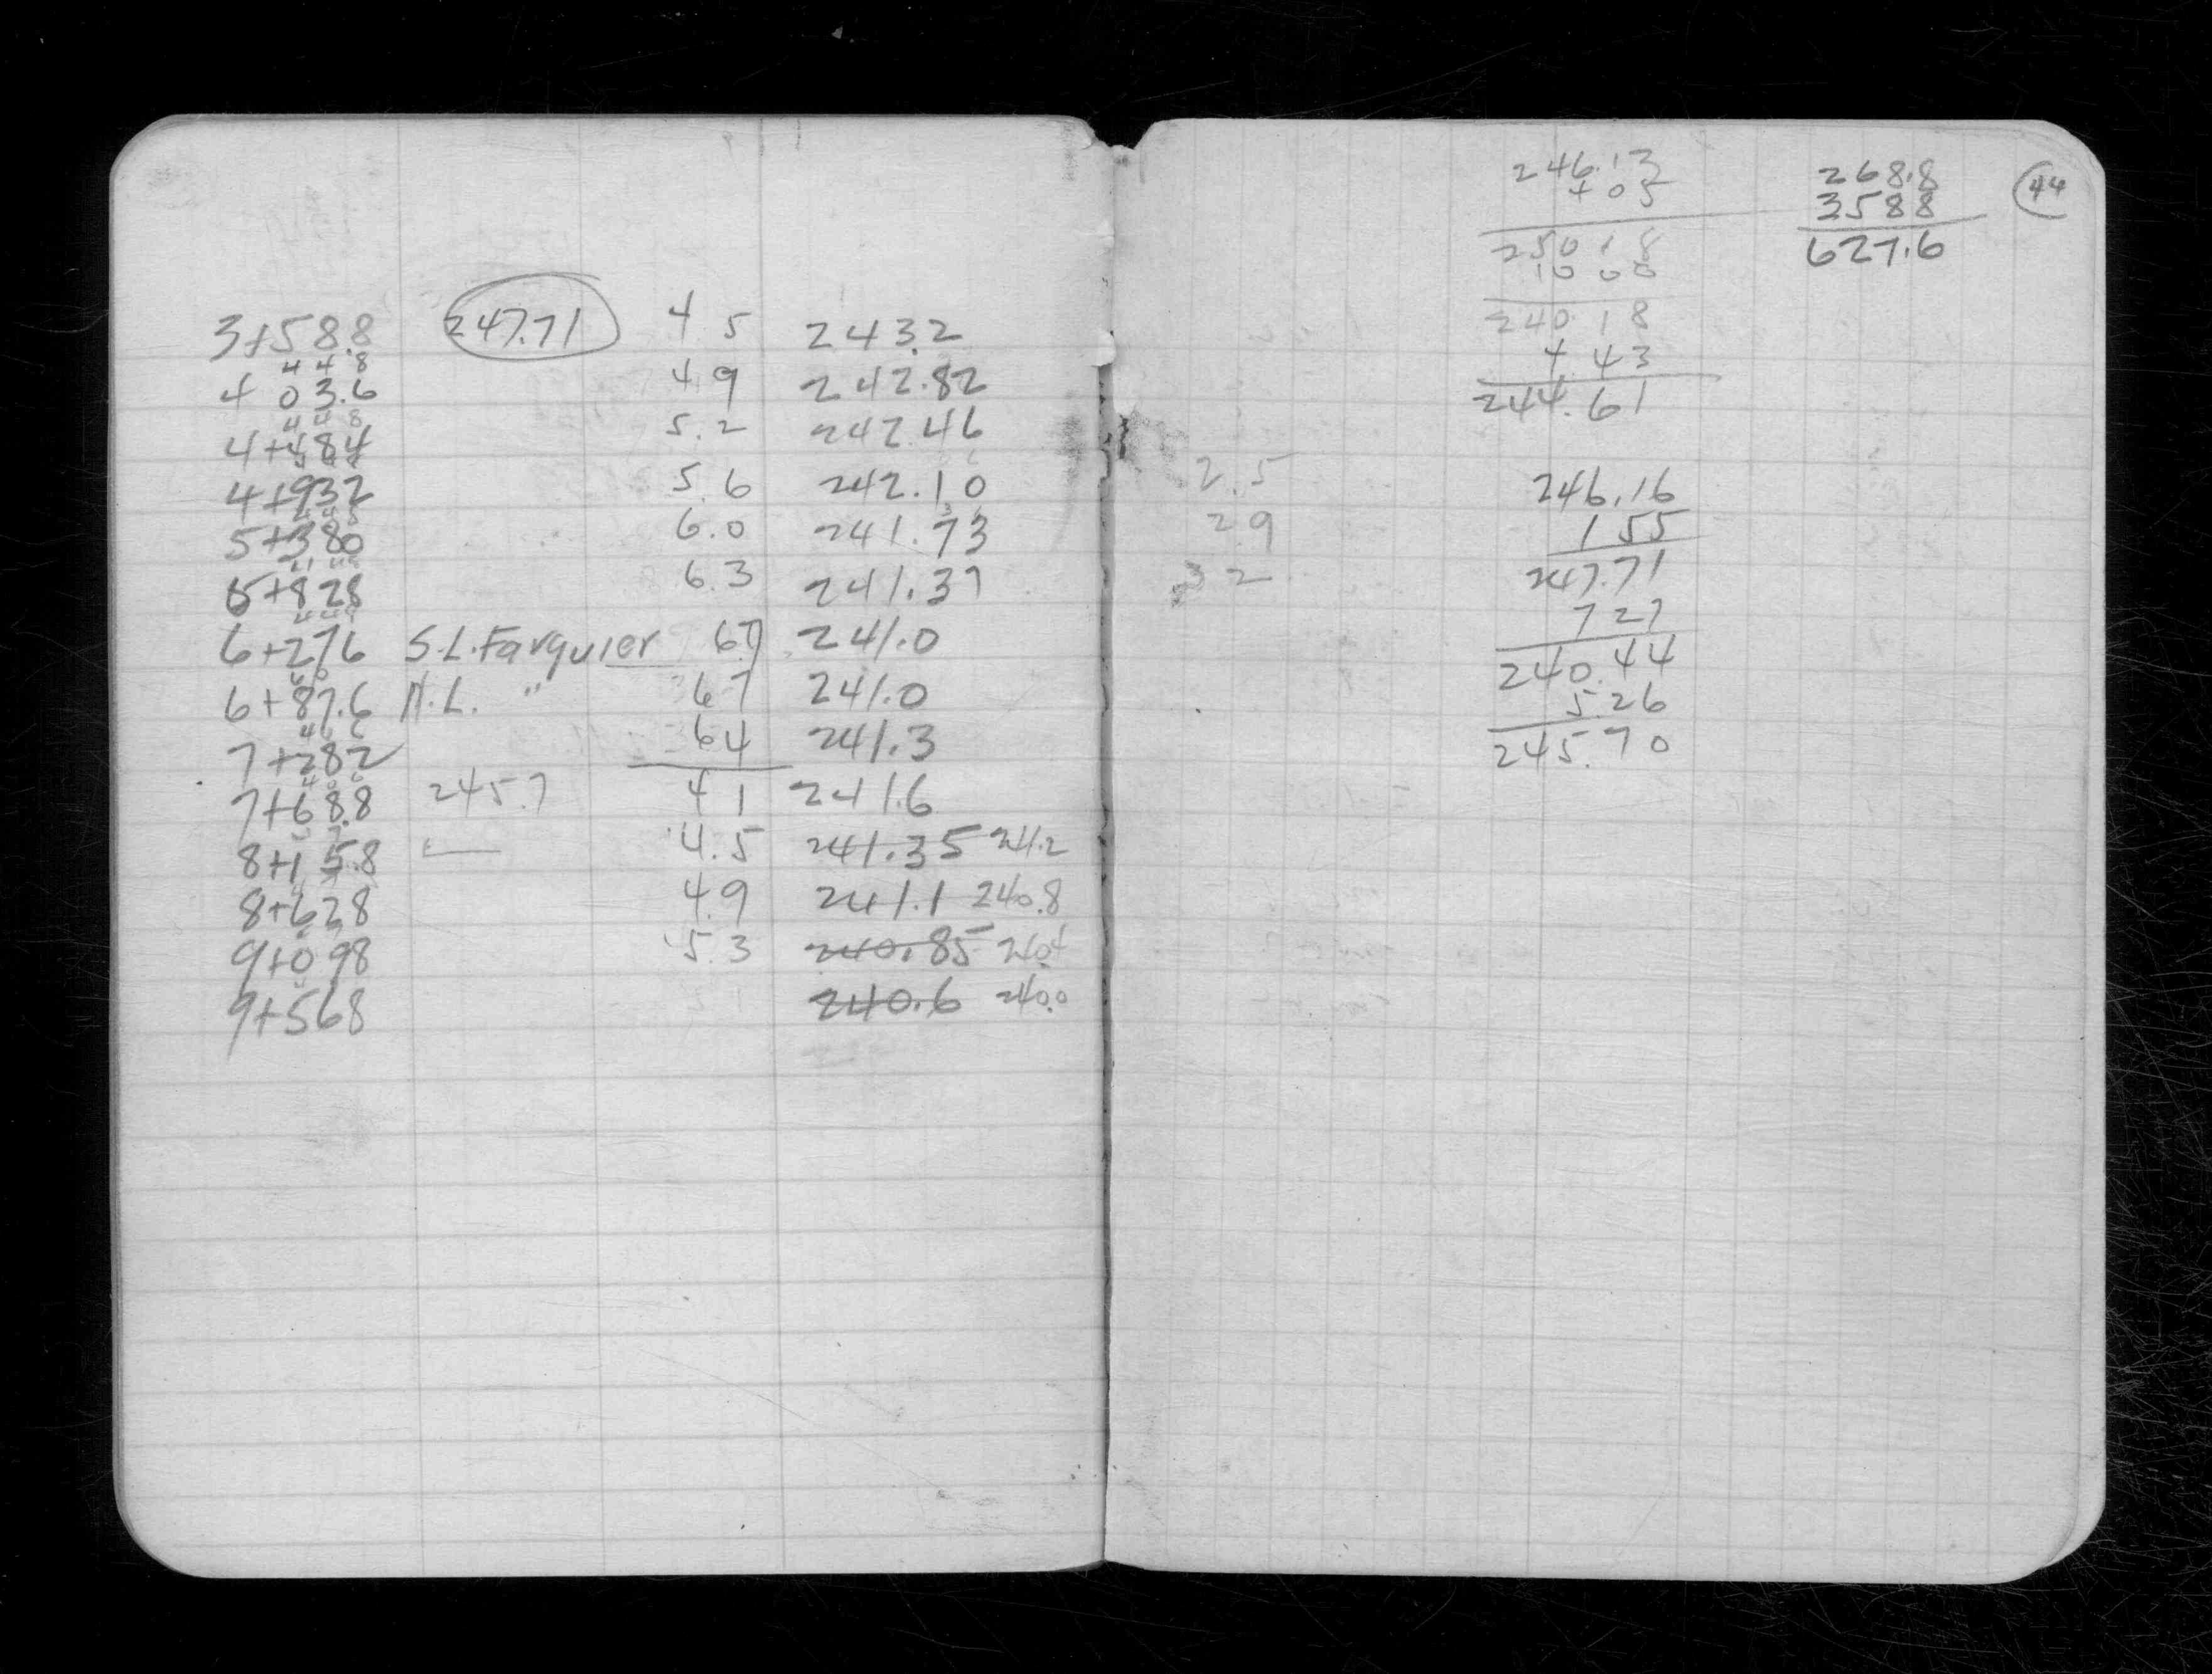 3+58.8 247.71 4 5 243.2
4 4 8
4 03.6 4 9 242.82
4 4 8
4+484 5.2 242.46
4+932 5.6 242.10
5+380 6.0 241.73
5+828 6.3 241.37
6+276 S.L. Farquier 6.7 241.0
6+87.6 N.L. " 6 7 241.0
7+282 6 4 241.3
7+68.8 245.7 4 1 241.6
8+15.8 4.5 241.35 241.2
8+628 4.9 241.1 240.8
9+098 5.3 240.85 240.4
9+568 240.6 240.0
44
246.13
4 05
250 18
10 00
240 18
4 43
244.61
268.8
358 8
627.6
2.5
2.9
3 2
246.16
1 55
247.71
7 27
240.44
5.26
245.70